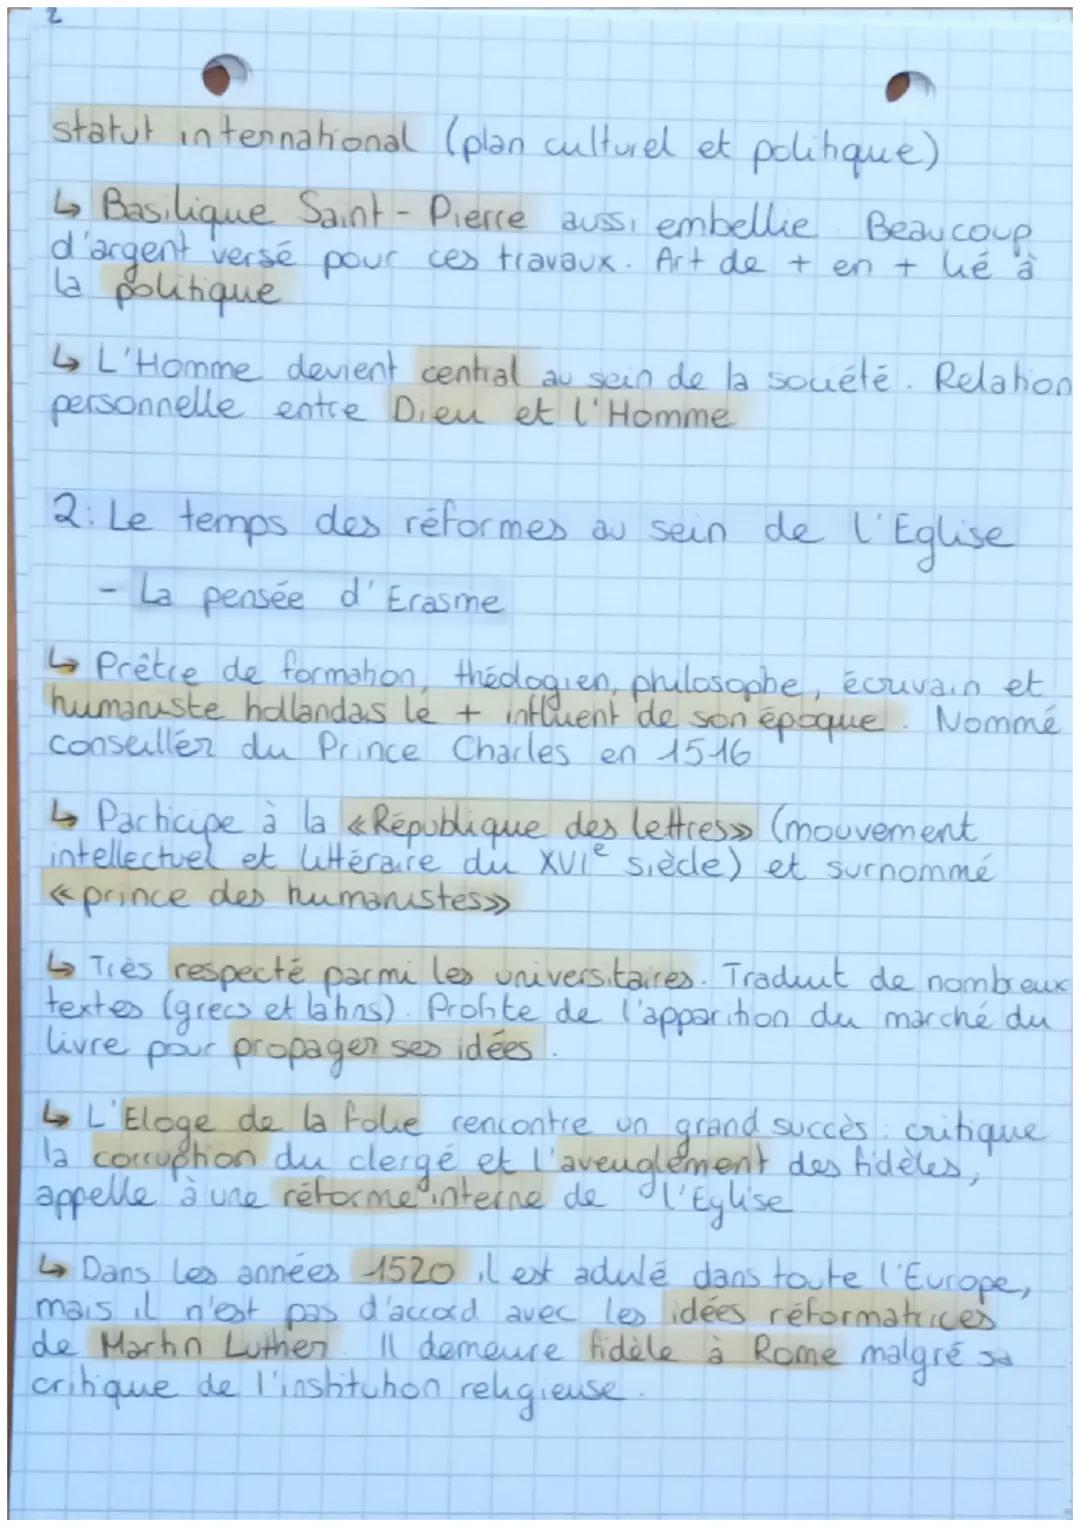 2
statut international (plan culturel et politique)
↳ Basilique Saint-Pierre aussi embellie. Beaucoup
d'argent versé pour ces travaux. Art de + en + lié à
la politique
↳ L'Homme devient central au sein de la société. Relation
personnelle entre Dieu et l'Homme
2: Le temps des réformes au sein de l'Eglise
- La pensée d'Erasme
↳ Prêtre de formation, théologien, philosophe, écrivain et
humaniste hollandais le + influent de son époque. Nommé
conseiller du Prince Charles en 1516
↳ Participe à la «République des lettres» (mouvement
intellectuel et littéraire du XVIe siècle) et surnommé
«prince des humanistes»
↳ Très respecté parmi les universitaires. Traduit de nombreux
textes (grecs et latins). Profite de l'apparition du marché du
livre pour propager ses idées.
↳ L'Eloge de la folie rencontre un grand succès : critique
la corruption du clergé et l'aveuglement des fidèles,
appelle à une réforme interne de l'Eglise
↳ Dans les années 1520 il est adulé dans toute l'Europe,
mais il n'est pas d'accord avec les idées réformatrices
de Martin Luther. Il demeure fidèle à Rome malgré sa
critique de l'institution religieuse.